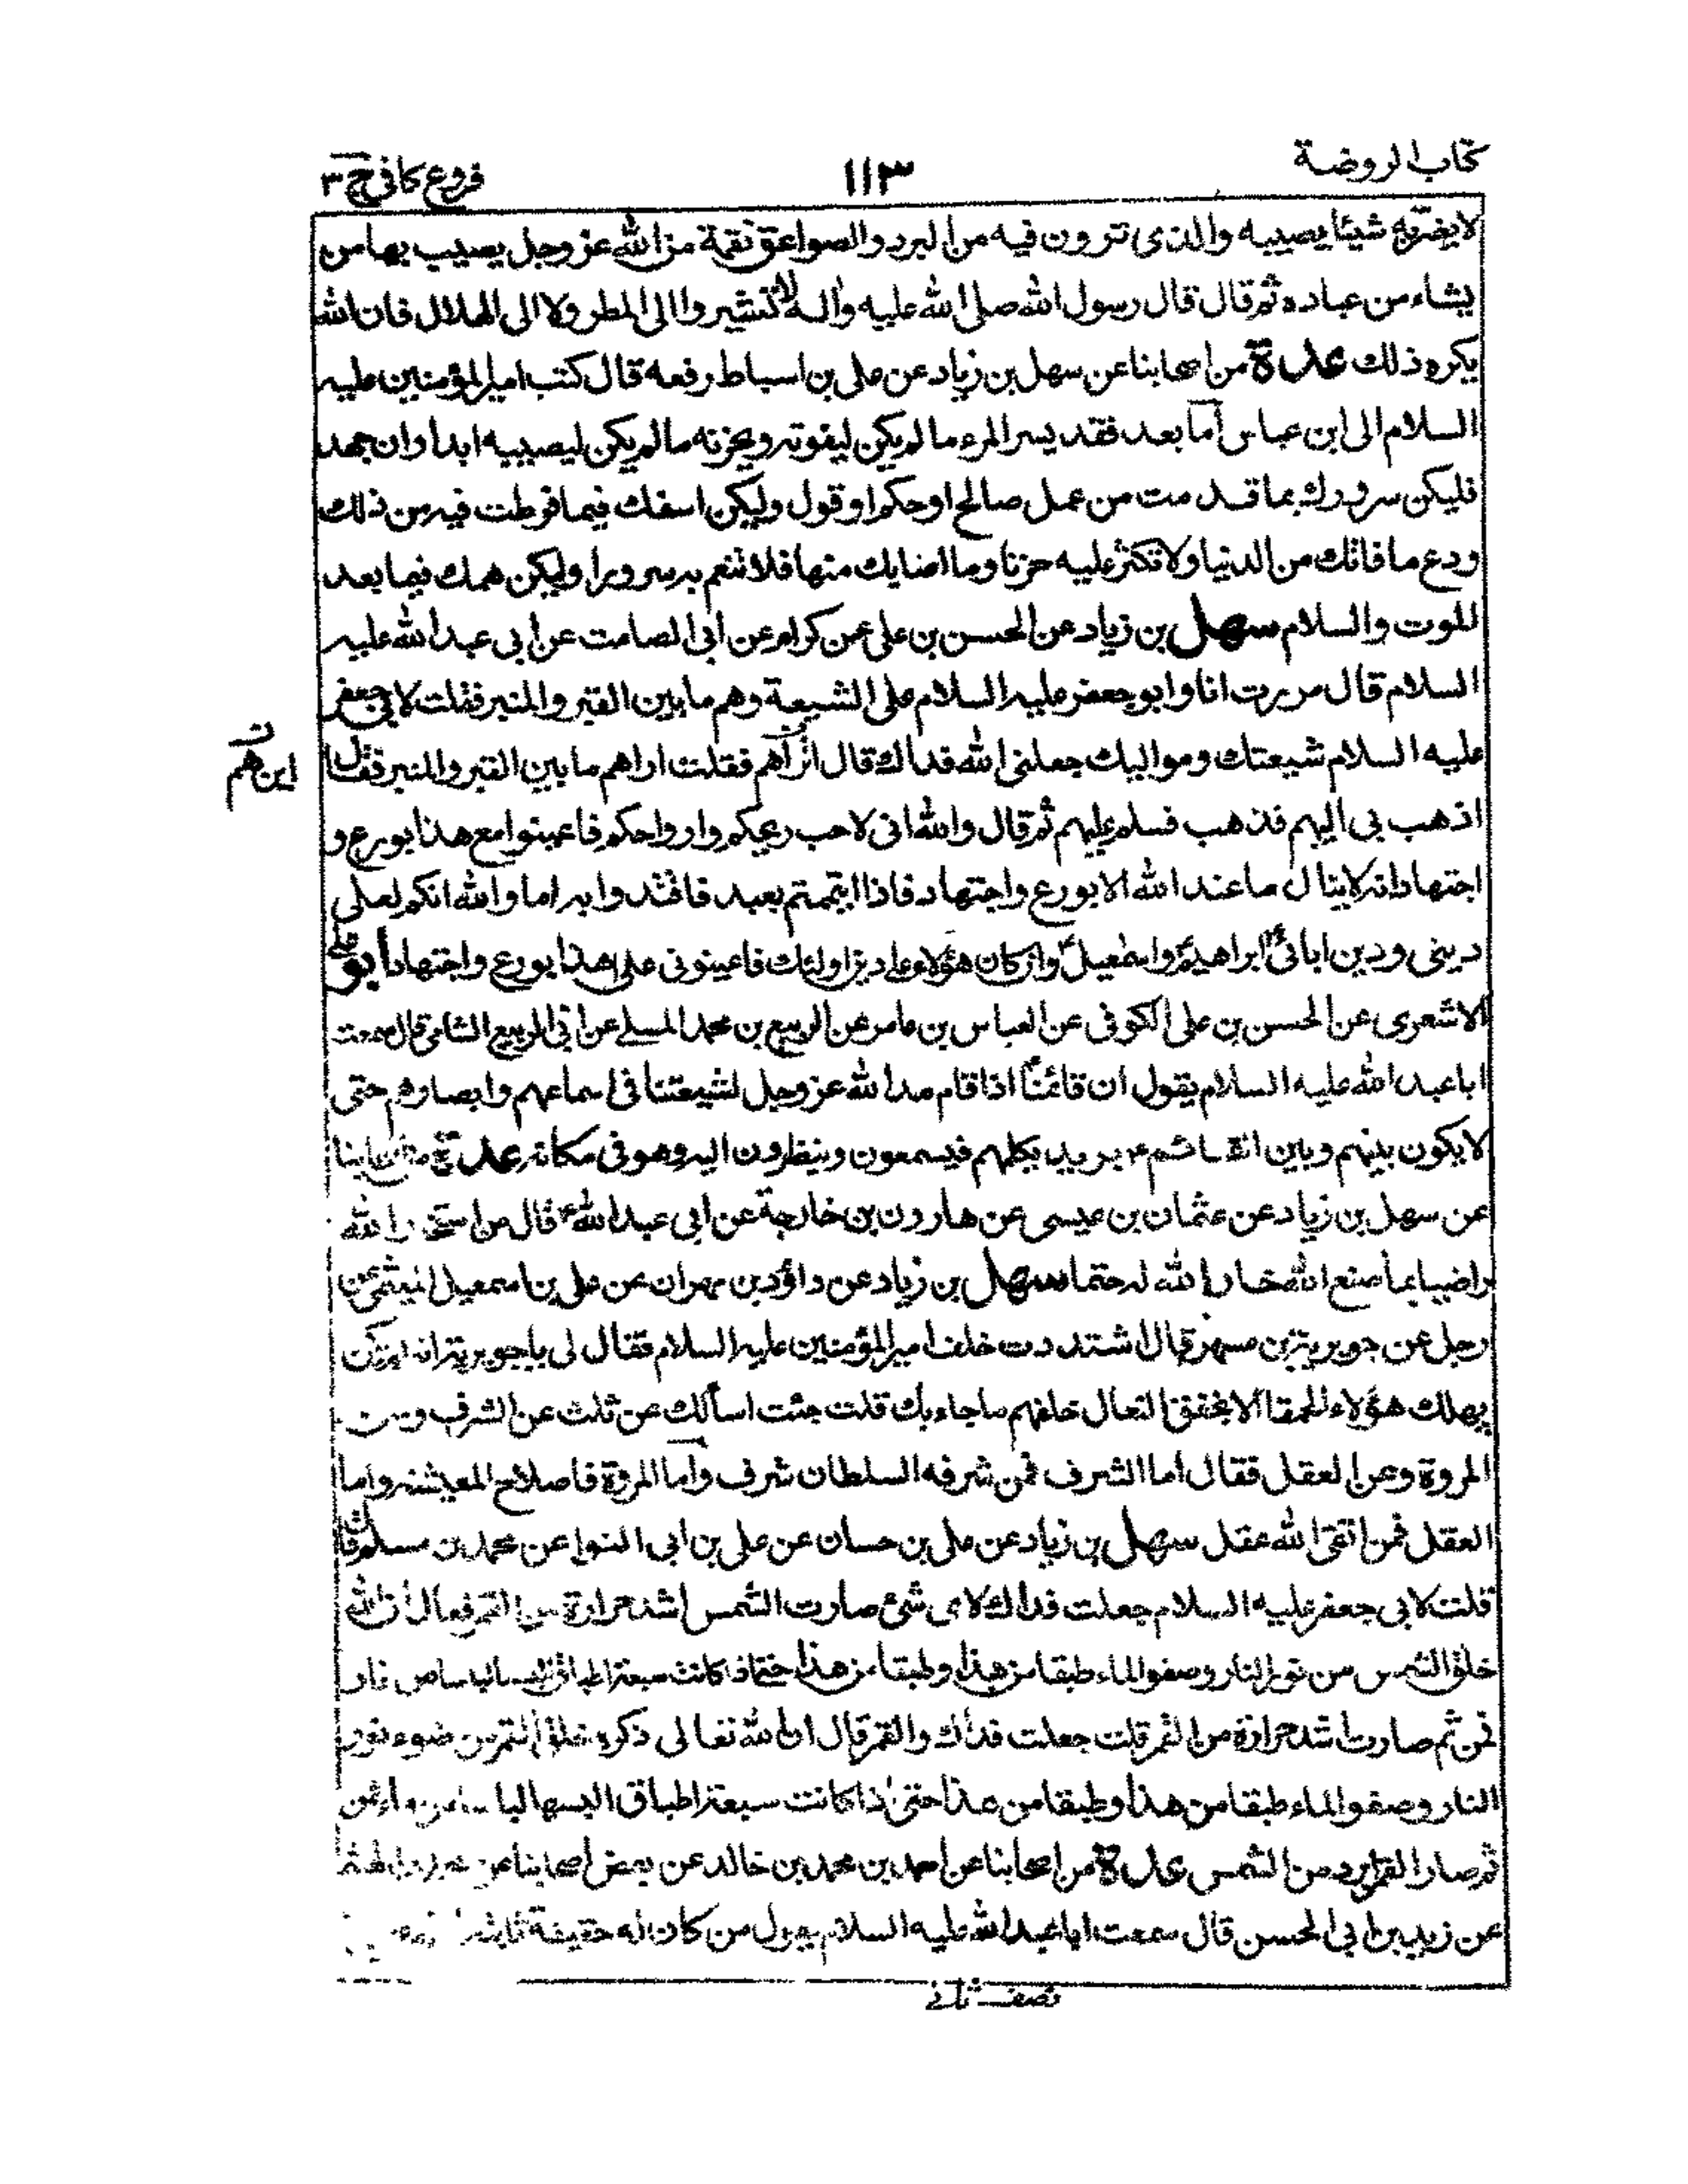 كتاب الروضة
١١٣
فروع كافى ج ٣
لا يضرّ به شيئا يصيبه والذى ترون فيه من البرد والصواعق نقمة من الله عز وجل يصيب بها من
يشاء من عباده ثم قال قال رسول الله صلى الله عليه واله لا تشيروا الى المطر ولا الى الهلال فان الله
يكره ذلك عدة من اصحابنا عن سهل بن زياد عن على بن اسباط رفعه قال كتب امير المؤمنين عليه
السلام الى ابن عباس أما بعد فقد يسر المرء ما لم يكن ليفوته ويحزنه ما لم يكن ليصيبه ابدا وان جهد
فليكن سرورك بما قدمت من عمل صالح او حكم او قول وليكن اسفك فيما فرطت فيه من ذلك
ودع ما فاتك من الدنيا ولا تكثر عليه حزنا وما اصابك منها فلا تنعم به سرورا وليكن همك فيما بعد
الموت والسلام سهل بن زياد عن الحسن بن على عن كرام عن ابى الصامت عن ابى عبد الله عليه
السلام قال مررت انا وابو جعفر عليه السلام على الشيعة وهم ما بين القبر والمنبر فقلت لابى جعفر
عليه السلام شيعتك ومواليك جعلنى الله فداك قال اراهم فقلت اراهم ما بين القبر والمنبر فقال
اين هم
اذهب بى اليهم فذهب فسلم عليهم ثم قال والله انى لاحب ريحكم وارواحكم فاعينوا مع هذا بورع و
اجتهاد انه لا ينال ما عند الله الا بورع واجتهاد فاذا ايتممتم بعبد فاقتدوا به اما والله انكم لعلى
دينى ودين ابائى ابراهيم واسمعيل وان كان هؤلاء على دين اولئك فاعينونى على هذا بورع واجتهاد ابو على
الاشعرى عن الحسن بن على الكوفى عن العباس بن عامر عن الربيع بن محمد المسلى عن ابى الربيع الشامى قال سمعت
ابا عبد الله عليه السلام يقول ان قائمنا اذا قام مد الله عز وجل لشيعتنا فى اسماعهم وابصارهم حتى
لا يكون بينهم وبين القائم ع بريد يكلمهم فيسمعون وينظرون اليه وهو فى مكانه عدة من اصحابنا
عن سهل بن زياد عن عثمان بن عيسى عن هارون بن خارجة عن ابى عبد الله ع قال من استخار الله
راضيا بما صنع الله خار الله له حتما سهل بن زياد عن داؤد بن مهران عن على بن اسمعيل الميثمى عن
رجل عن جويرية بن مسهر قال اشتددت خلف امير المؤمنين عليه السلام فقال لى يا جويرية انه لم يكن
يهلك هؤلاء الحمقا الا بخفق النعال خلفهم ما جاء بك قلت جئت اسألك عن ثلث عن الشرف وعن
المروة وعن العقل فقال اما الشرف فمن شرفه السلطان شرف وأما المروة فاصلاح المعيشة واما
العقل فمن اتقى الله عقل سهل بن زياد عن على بن حسان عن على بن ابى النوار عن محمد بن مسلم قال
قلت لابى جعفر عليه السلام جعلت فداك لاى شئ صارت الشمس اشد حرارة من القمر فقال ان الله
خلق الشمس من نور النار وصفو الماء طبقا من هذا وطبقا من هذا حتى اذا كانت سبعة اطباق البسها لباسا من نار
فمن ثم صارت اشد حرارة من القمر قلت جعلت فداك والقمر قال ان الله تعالى ذكره خلق القمر من ضوء نور
النار وصفو الماء طبقا من هذا وطبقا من هذا حتى اذا كانت سبعة اطباق البسها لباسا من ماء فمن
ثم صار القمر ابرد من الشمس عدة من اصحابنا عن احمد بن محمد بن خالد عن بعض اصحابنا عن
عن زيد بن ابى الحسن قال سمعت ابا عبد الله عليه السلام يقول من كان له حقيقة ثابتة
نصف ثانى